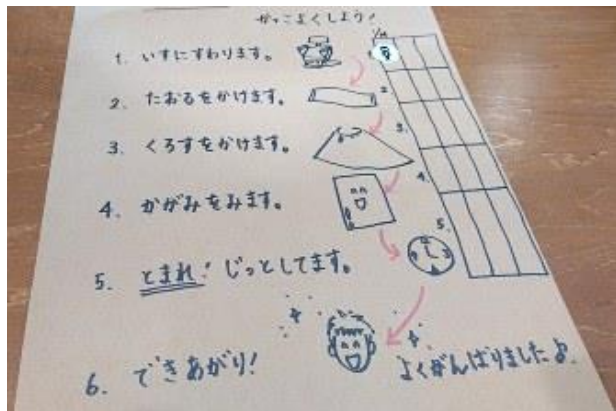 かっこよくしよう!
1. いすにすわります。
2. たおるをかけます。
3. くろすをかけます。
4. かがみをみます。
5. とまれ! じっとしてます。
6. できあがり!
よくがんばりましたよ。
2.
3.
4.
5.